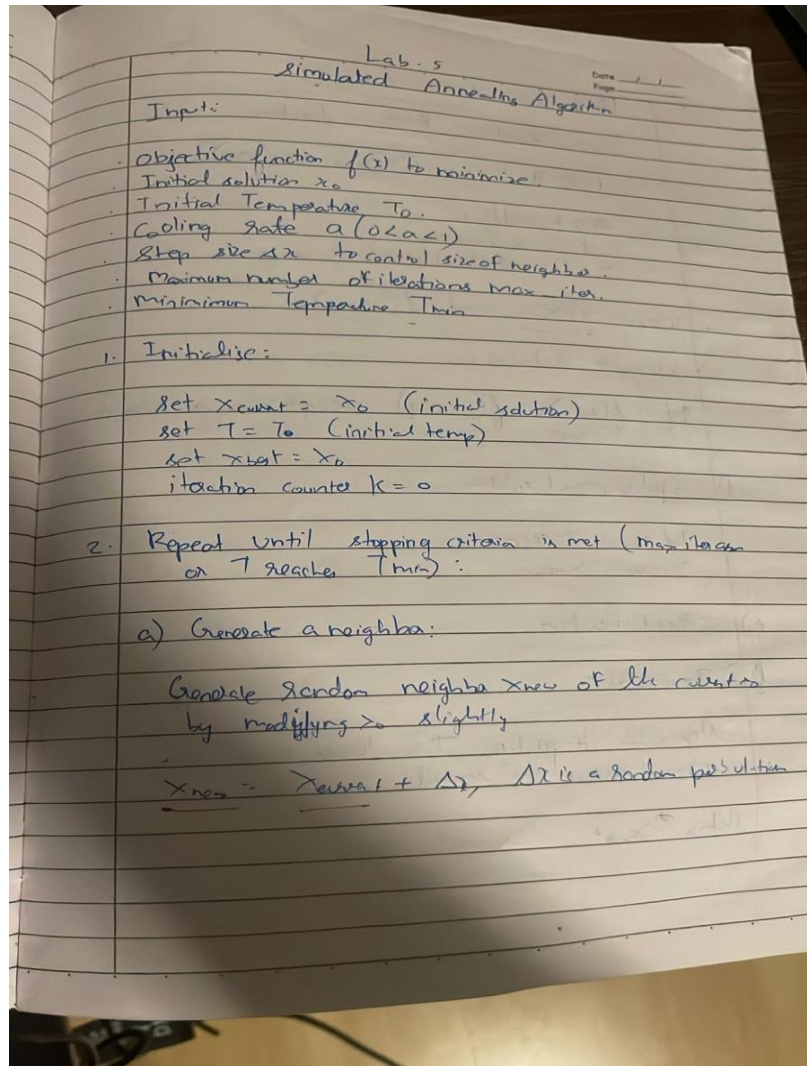 Lab. 5
Simulated Annealing Algorithm
Date / /
Page
Input:
. Objective function f(x) to minimize.
. Initial solution x₀
. Initial Temperature T₀.
. Cooling rate a (0<a<1)
. Step size Δx to control size of neighbor.
. Maximum number of iterations max iter.
. Mininimum Temperature Tmin
1. Initialise:
set xcurrent = x₀ (initial solution)
set T = T₀ (initial temp)
set xbest = x₀
iteration counter K = 0
2. Repeat until stopping criteria is met (max iteration
or T reaches Tmin) :
a) Generate a neighbor:
Generate random neighbor xnew of the current
by modifying slightly
xnew = xcurrent + Δx, Δx is a random